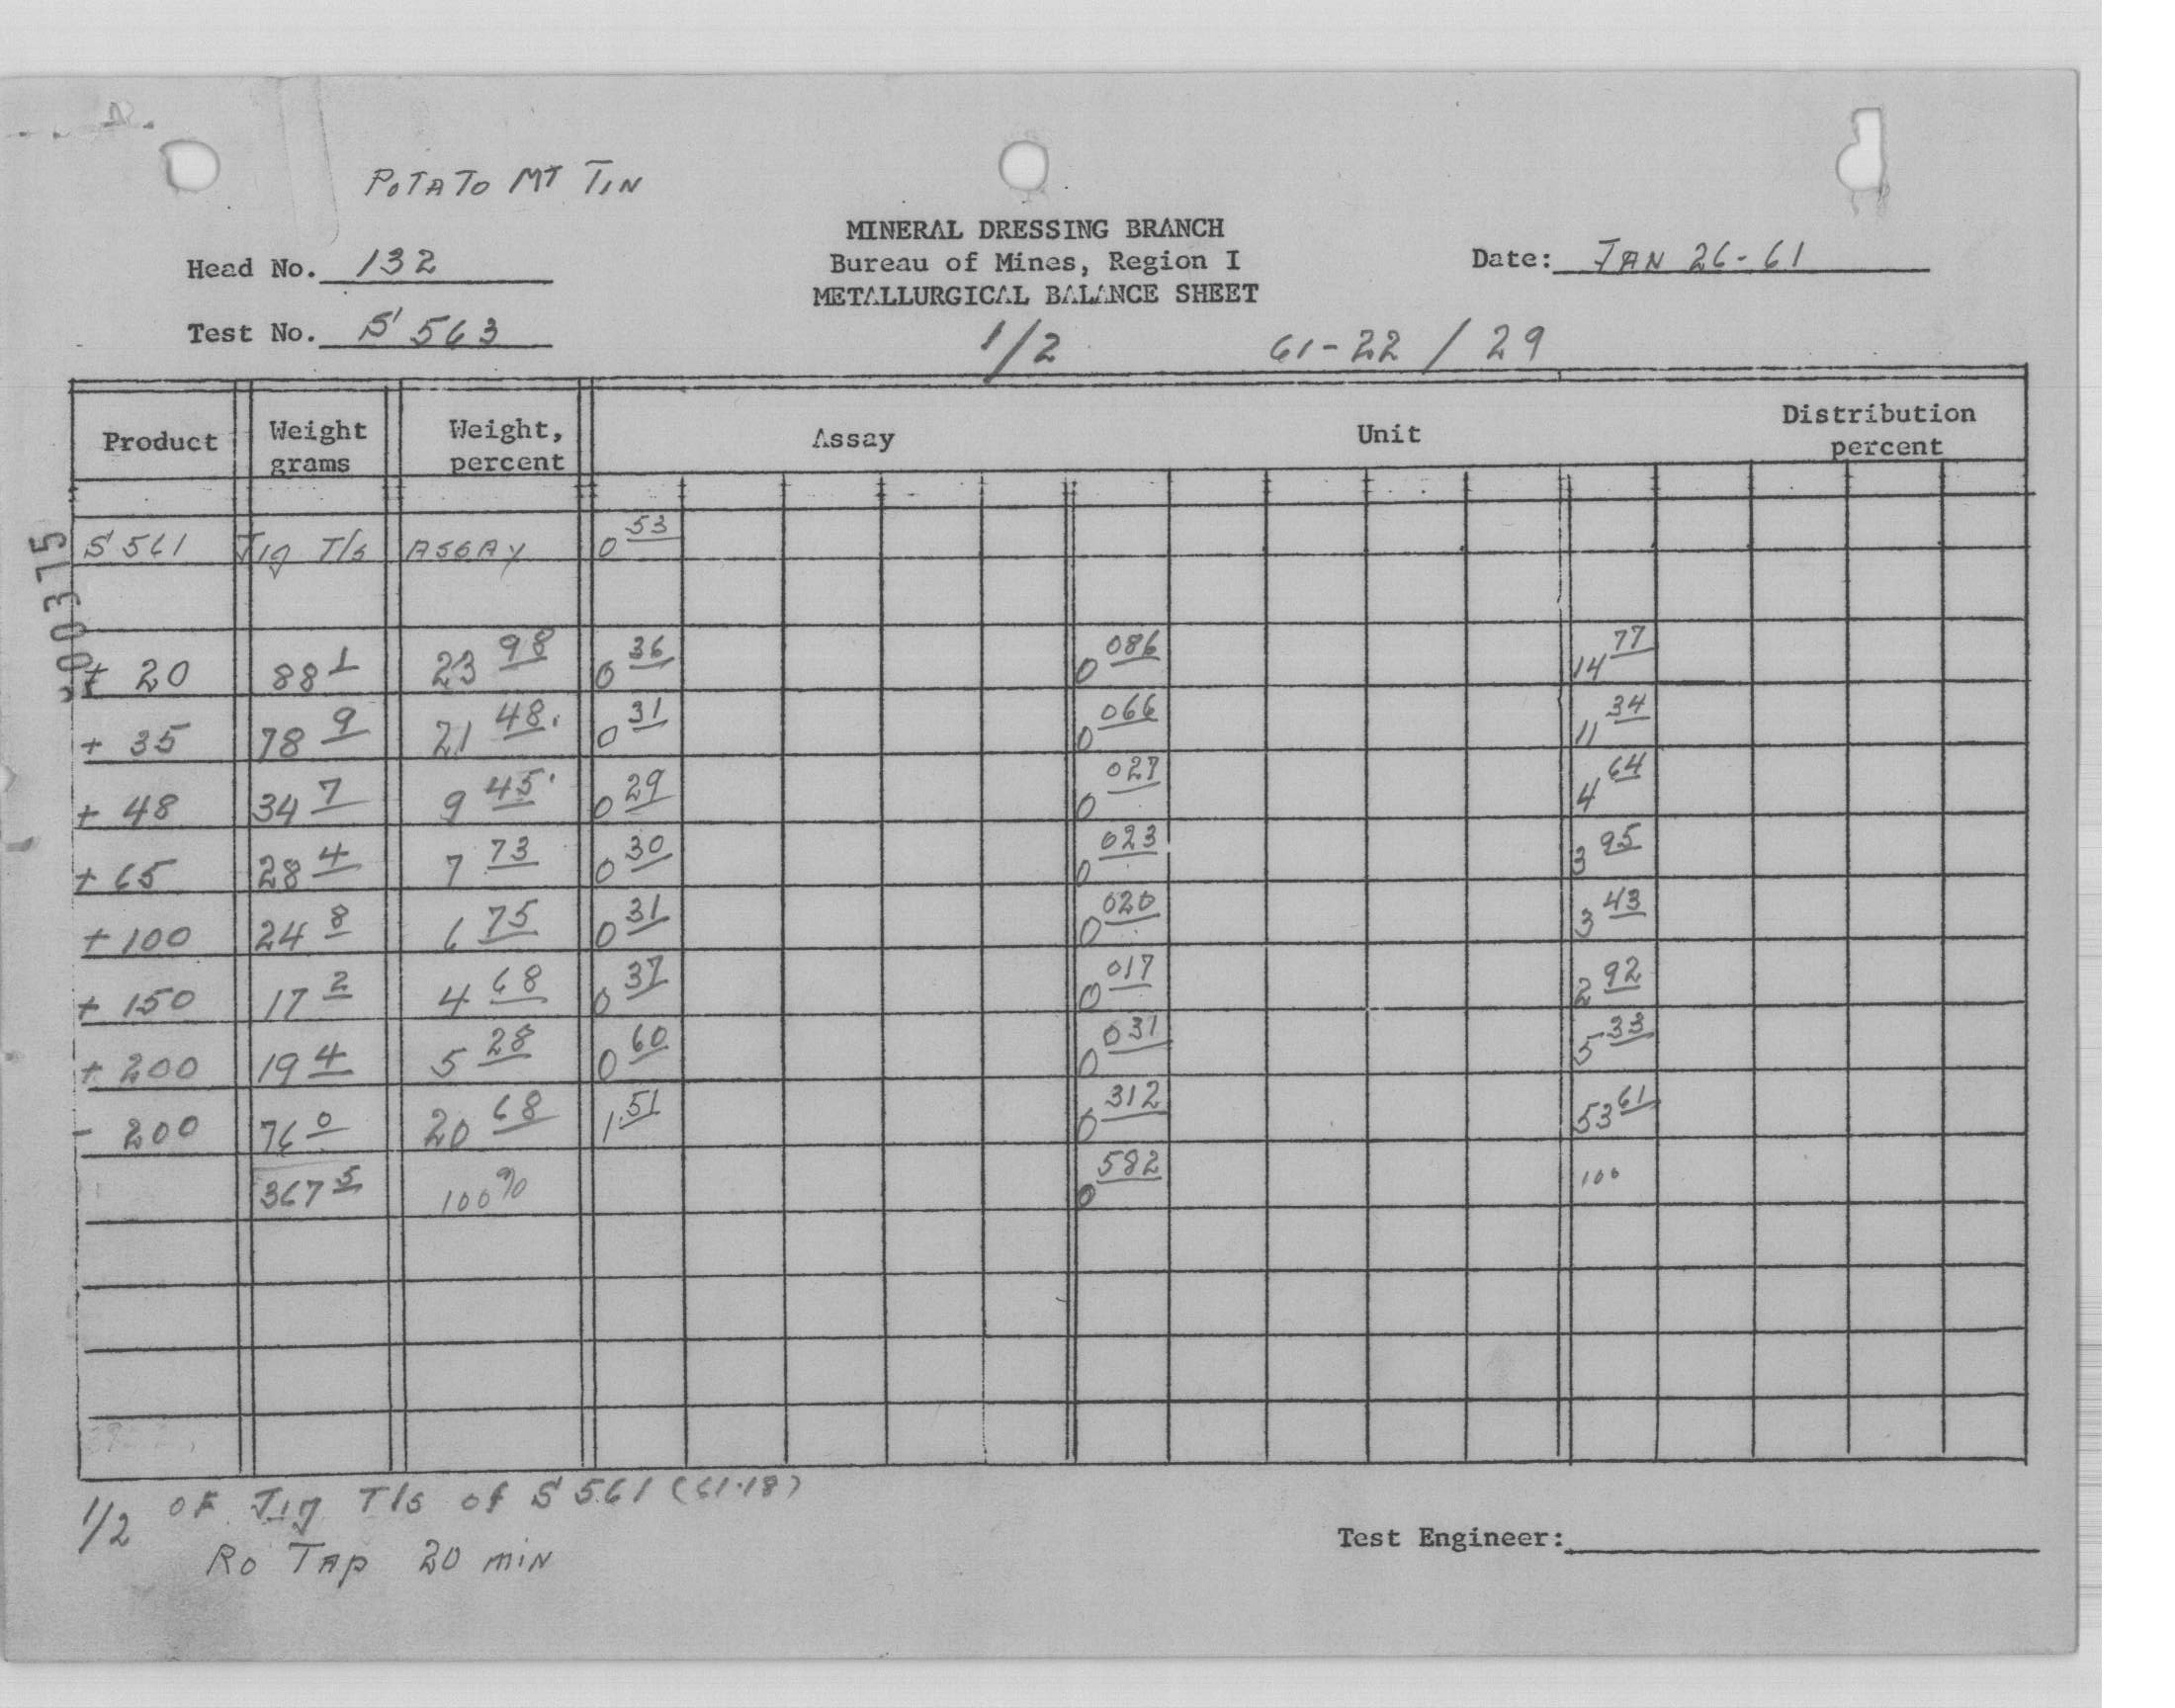 POTATO MT TIN
MINERAL DRESSING BRANCH
Head No. 132 Bureau of Mines, Region I Date: JAN 26-61
METALLURGICAL BALANCE SHEET
Test No. S 563 1/2 61-22 / 29
Product Weight grams Weight, percent Assay Unit Distribution percent
S 561 Jig T/s ASSAY 0 53
+ 20 88 1 23 98 0 36 0 086 14 77
+ 35 78 9 21 48 0 31 0 066 11 34
+ 48 34 7 9 45 0 29 0 027 4 64
+ 65 28 4 7 73 0 30 0 023 3 95
+ 100 24 8 6 75 0 31 0 020 3 43
+ 150 17 2 4 68 0 37 0 017 2 92
+ 200 19 4 5 28 0 60 0 031 5 33
- 200 76 0 20 68 1 51 0 312 53 61
367 5 100% 0 582 100
1/2 OF Jig T/s of S 561 (61-18)
Ro TAP 20 MIN
Test Engineer: